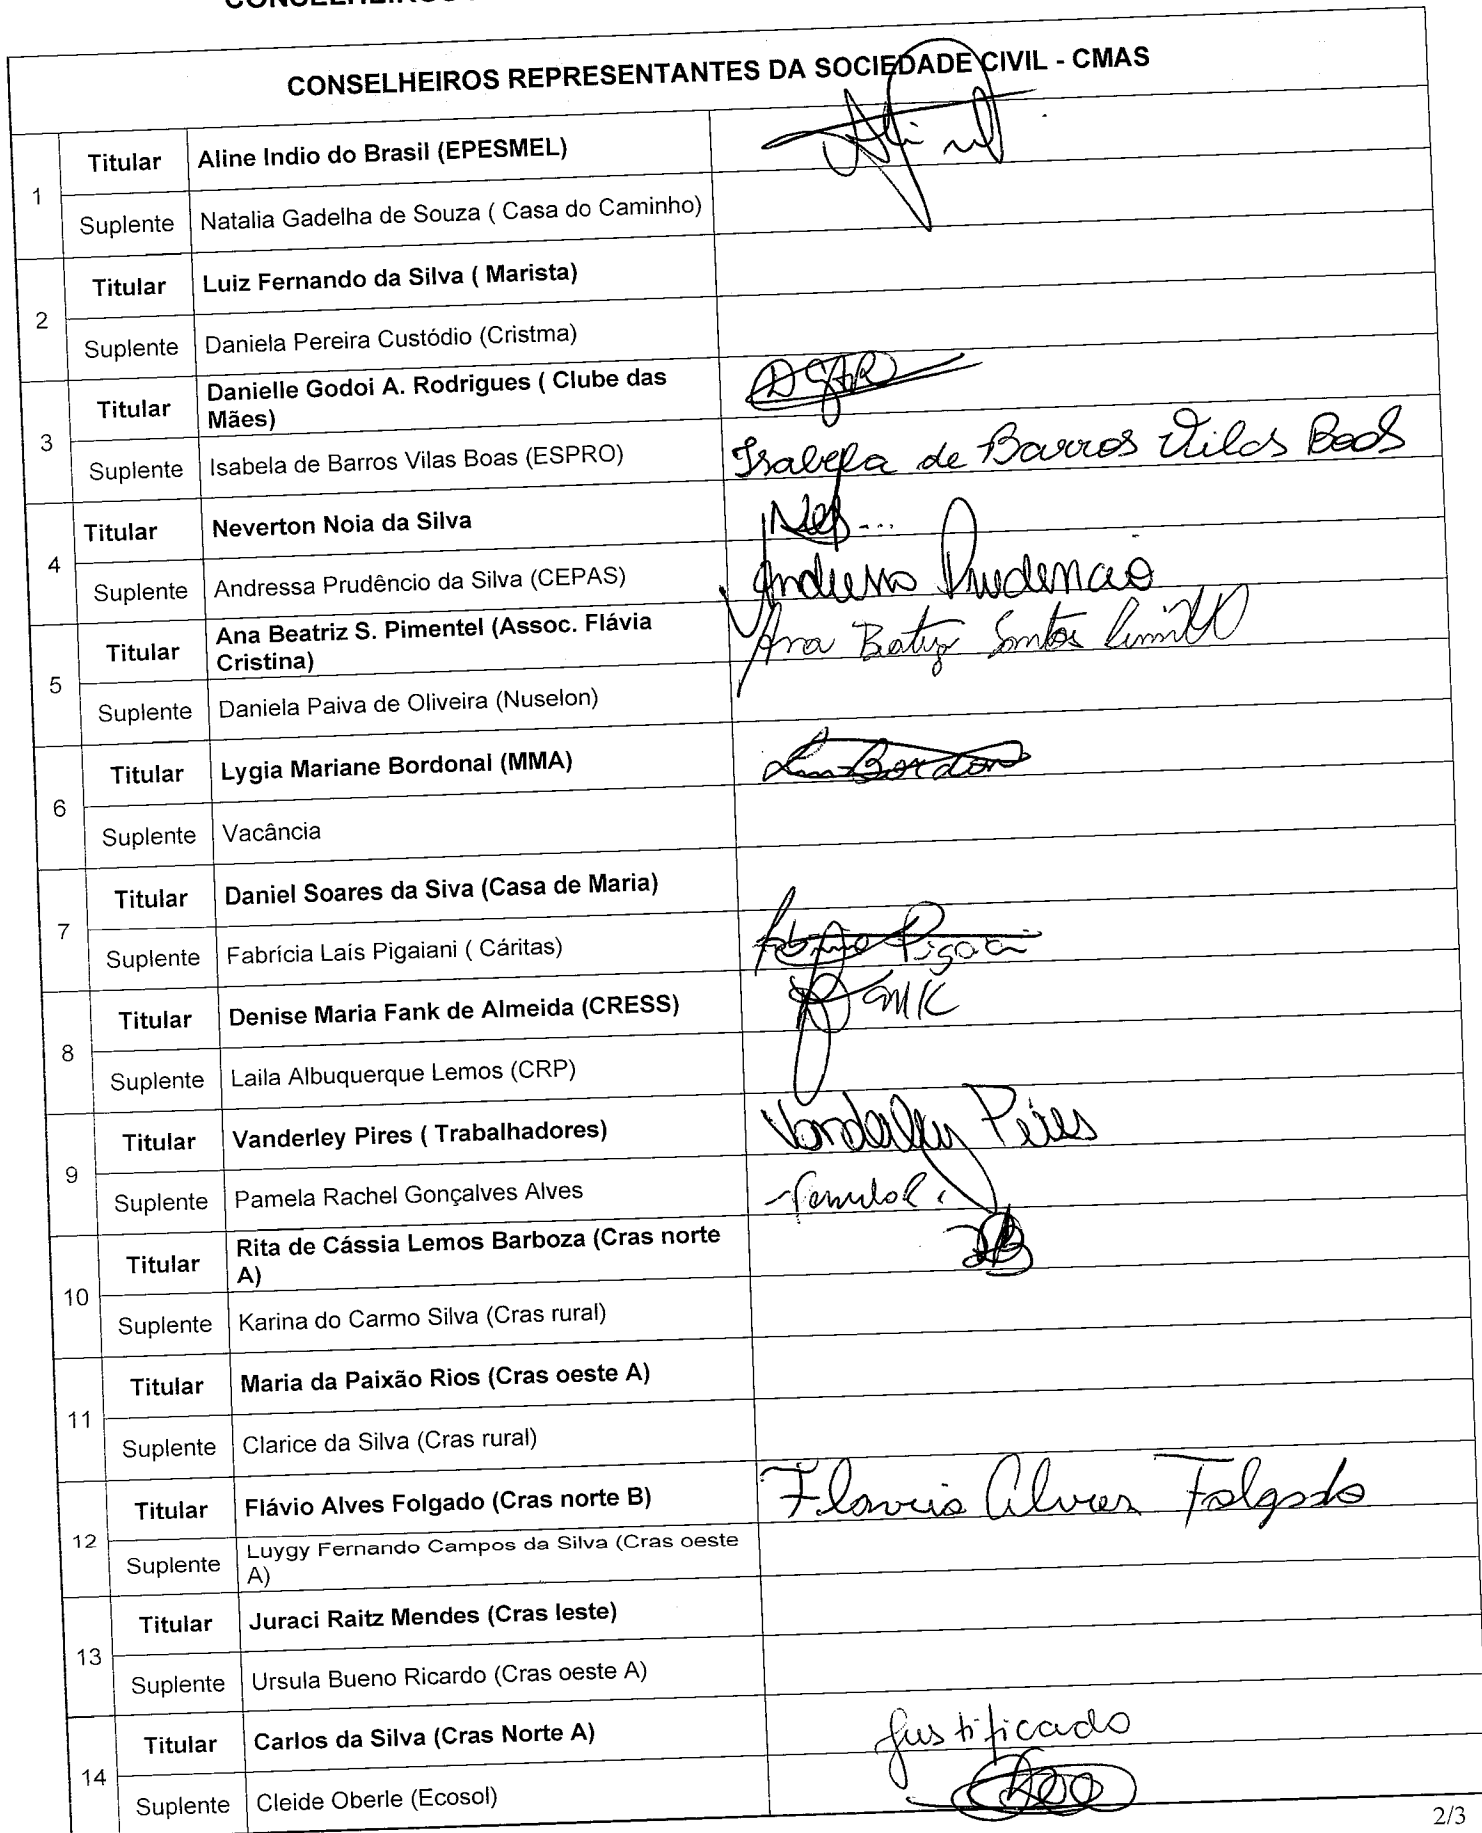 CONSELHEIROS REPRESENTANTES DA SOCIEDADE CIVIL - CMAS
1
Titular Aline Indio do Brasil (EPESMEL)
Suplente Natalia Gadelha de Souza ( Casa do Caminho)
2
Titular Luiz Fernando da Silva ( Marista)
Suplente Daniela Pereira Custódio (Cristma)
3
Titular Danielle Godoi A. Rodrigues ( Clube das
Mães)
DGAR
Suplente Isabela de Barros Vilas Boas (ESPRO) Isabela de Barros Vilas Boas
4
Titular Neverton Noia da Silva
Suplente Andressa Prudêncio da Silva (CEPAS) Andressa Prudencio
5
Titular Ana Beatriz S. Pimentel (Assoc. Flávia
Cristina)
Ana Beatriz Santos Pimentel
Suplente Daniela Paiva de Oliveira (Nuselon)
6
Titular Lygia Mariane Bordonal (MMA)
Suplente Vacância
7
Titular Daniel Soares da Siva (Casa de Maria)
Suplente Fabrícia Laís Pigaiani ( Cáritas)
8
Titular Denise Maria Fank de Almeida (CRESS)
Suplente Laila Albuquerque Lemos (CRP)
9
Titular Vanderley Pires ( Trabalhadores) Vanderley Pires
Suplente Pamela Rachel Gonçalves Alves
10
Titular Rita de Cássia Lemos Barboza (Cras norte
A)
Suplente Karina do Carmo Silva (Cras rural)
11
Titular Maria da Paixão Rios (Cras oeste A)
Suplente Clarice da Silva (Cras rural)
12
Titular Flávio Alves Folgado (Cras norte B) Flavio Alves Folgado
Suplente Luygy Fernando Campos da Silva (Cras oeste
A)
13
Titular Juraci Raitz Mendes (Cras leste)
Suplente Ursula Bueno Ricardo (Cras oeste A)
14
Titular Carlos da Silva (Cras Norte A) Justificado
Suplente Cleide Oberle (Ecosol)
2/3